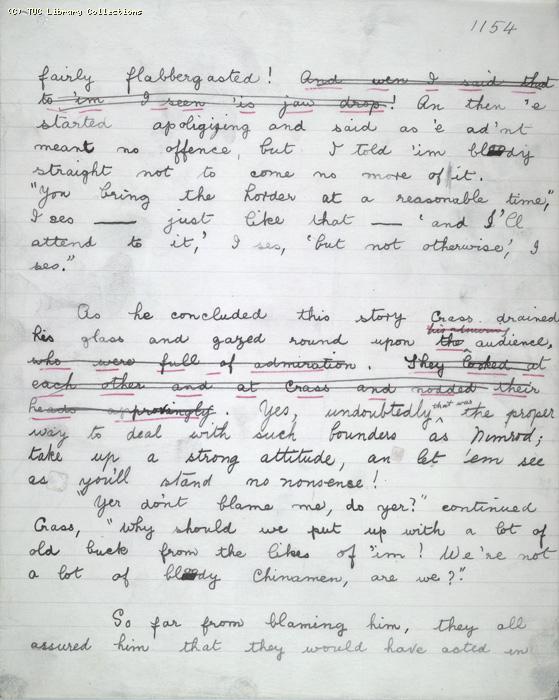 (C) TUC Library Collections
1154
fairly flabbergasted! And wen I said that
to 'im I seen 'is jaw drop! An then 'e
started apoligizing and said as 'e ad'nt
meant no offence, but I told 'im bloody
straight not to come no more of it.
"You bring the horder at a reasonable time,"
I ses — just like that — 'and I'll
attend to it,' I ses, 'but not otherwise', I
ses."
As he concluded this story Crass drained
his glass and gazed round upon the audience,
who were full of admiration. They looked at
each other and at Crass and nodded their
heads approvingly. Yes, undoubtedly that was the proper
way to deal with such bounders as Nimrod;
take up a strong attitude, an let 'em see
as you'll stand no nonsense!
"Yer don't blame me, do yer?" continued
Crass, "why should we put up with a lot of
old buck from the likes of 'im! We're not
a lot of bloody Chinamen, are we?"
So far from blaming him, they all
assured him that they would have acted in